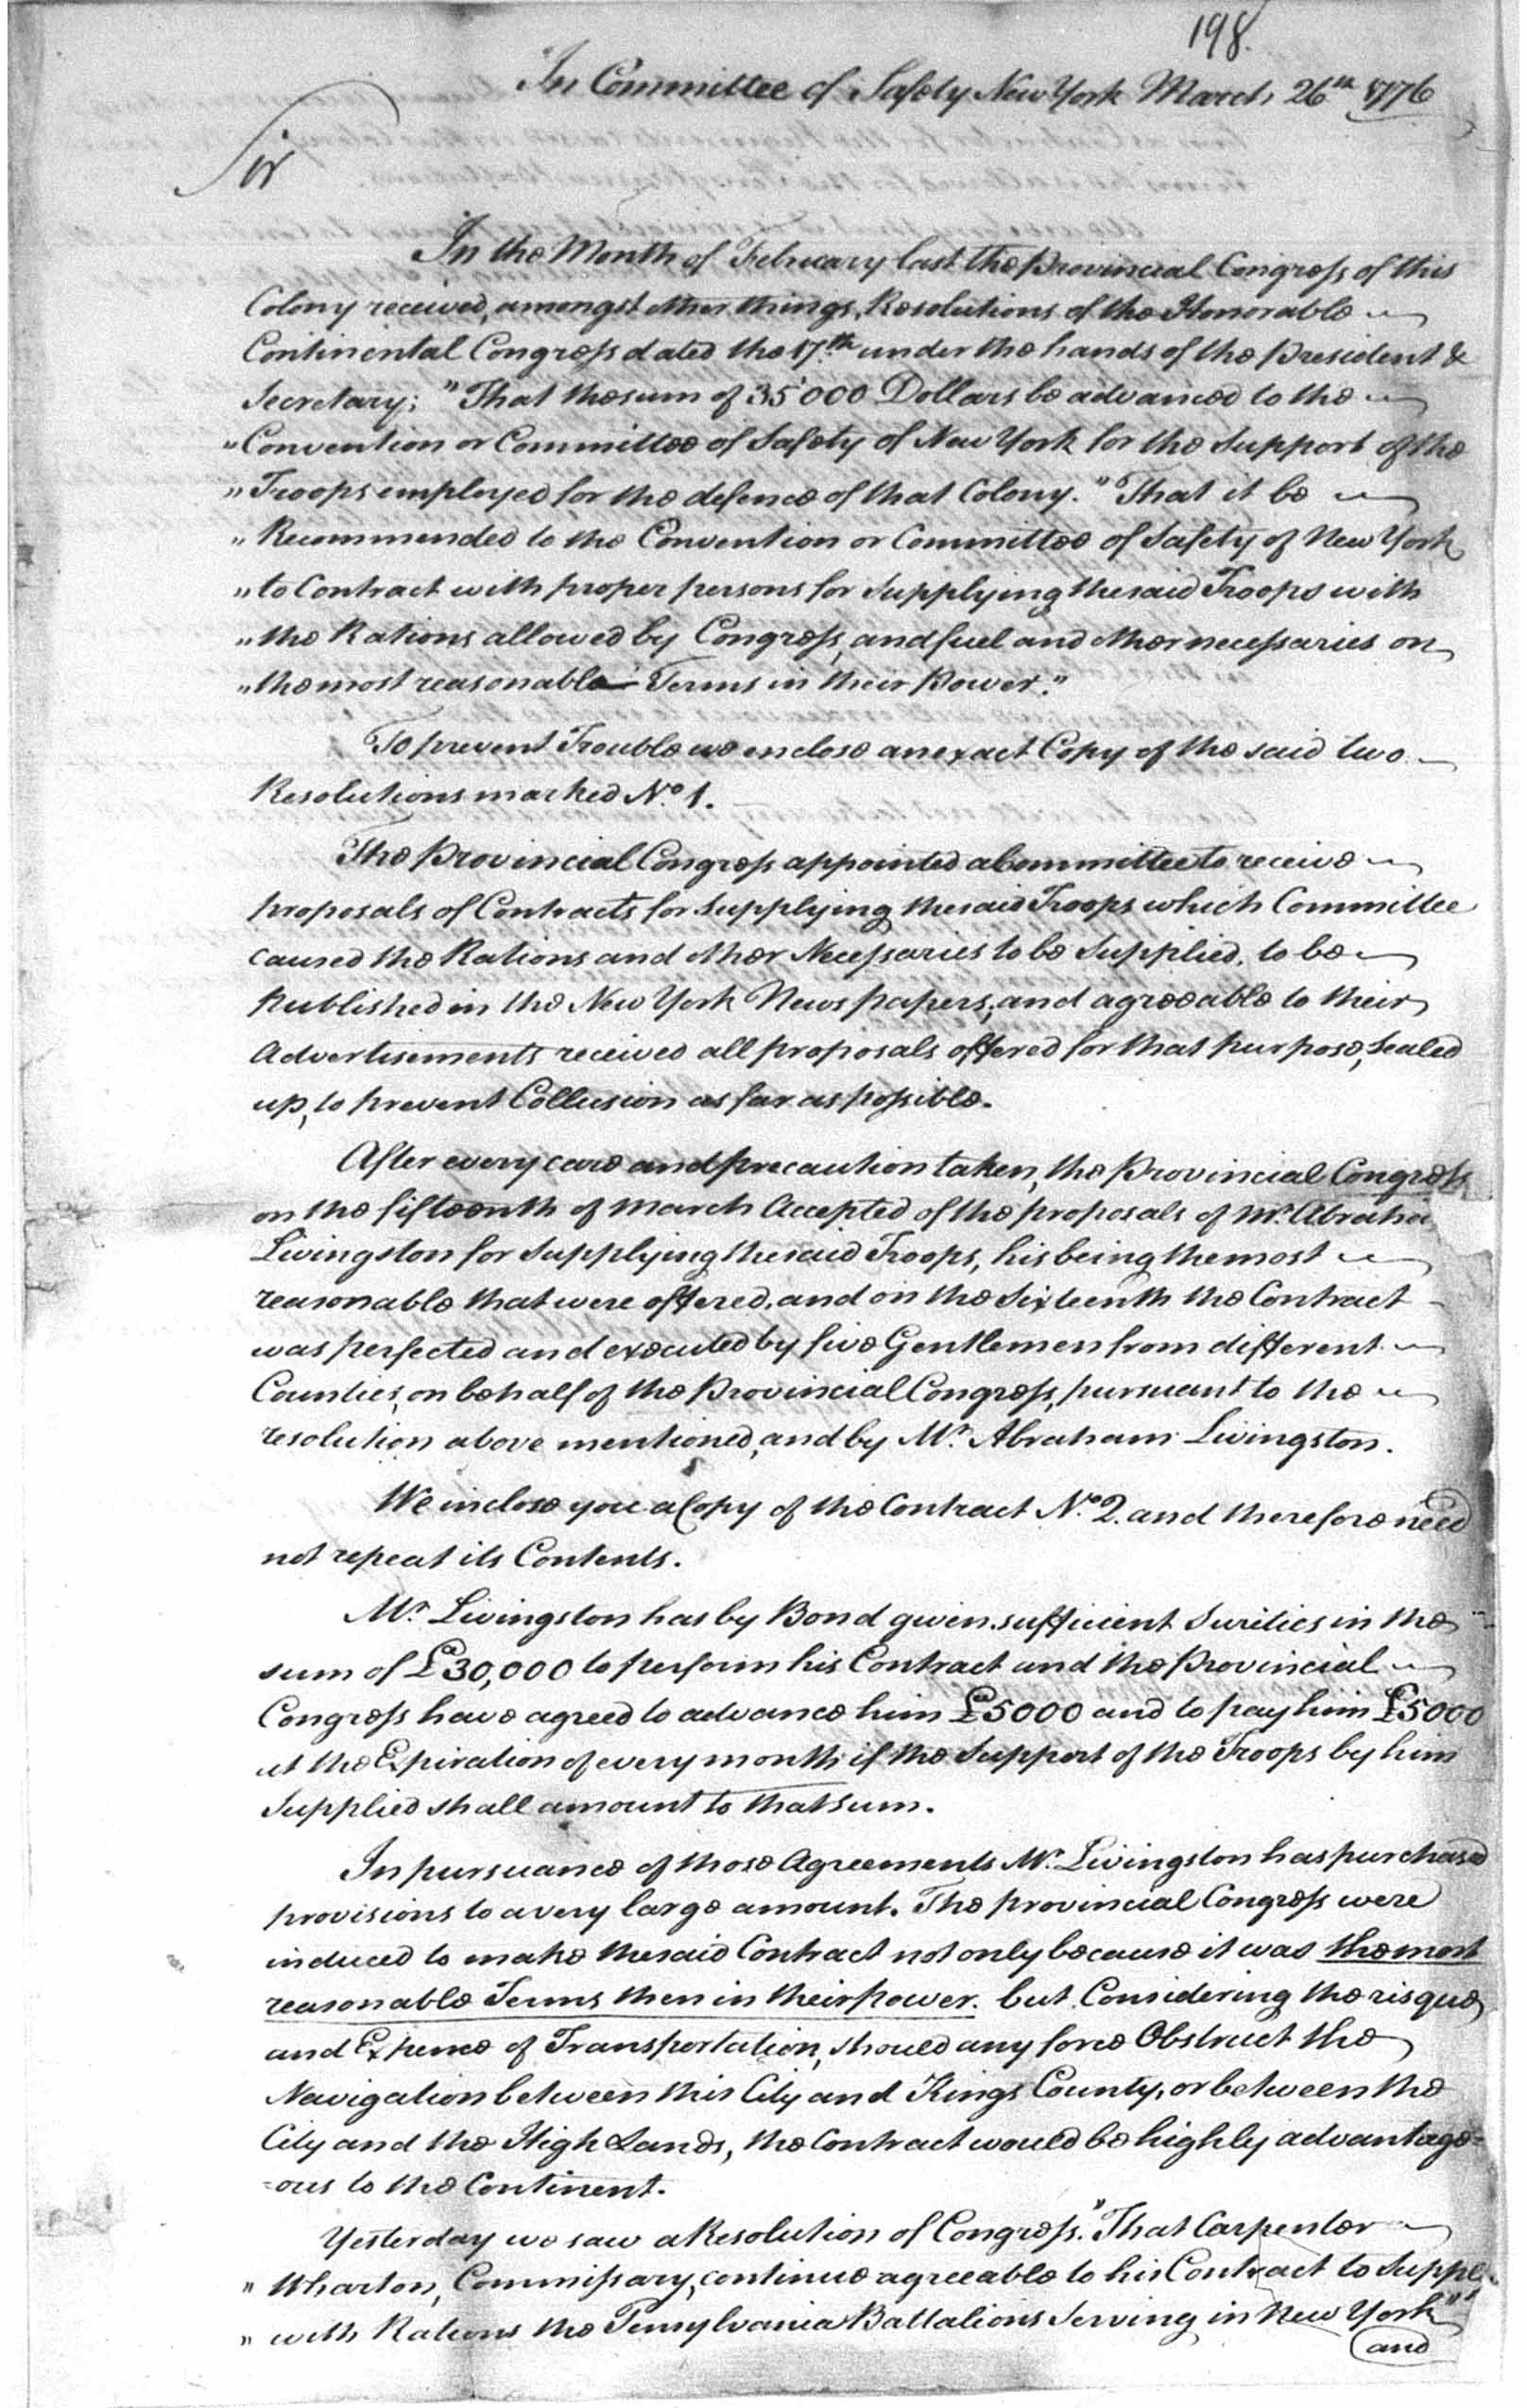 198.
In Committee of Safety New York March 26th 1776
Sir
In the Month of February last the Provincial Congress of this
Colony received, amongst other things, Resolutions of the Honorable
Continental Congress dated the 17th under the hands of the President &
Secretary; "That the sum of 35'000 Dollars be advanced to the
"Convention or Committee of Safety of New York for the Support of the
"Troops employed for the defence of that Colony." "That it be
"Recommended to the Convention or Committee of Safety of New York
"to Contract with proper persons for Supplying the said Troops with
"the Rations allowed by Congress, and fuel and other necessaries on
"the most reasonable Terms in their Power."
To prevent Trouble we enclose an exact Copy of the said two
Resolutions marked No. 1.
The Provincial Congress appointed a Committee to receive
proposals of Contracts for Supplying the said Troops which Committee
caused the Rations and other Necessaries to be Supplied, to be
Published in the New York News papers; and agreeable to their
Advertisements received all proposals offered for that purpose, Sealed
up, to prevent Collusion as far as possible.
After every care and precaution taken, the Provincial Congress
on the fifteenth of March Accepted of the proposals of Mr. Abraha
Livingston for Supplying the said Troops, his being the most
reasonable that were offered, and on the Sixteenth the Contract
was perfected and executed by five Gentlemen from different
Counties, on behalf of the Provincial Congress, pursuant to the
resolution above mentioned, and by Mr. Abraham Livingston.
We inclose you a Copy of the Contract No. 2. and therefore need
not repeat its Contents.
Mr. Livingston has by Bond given sufficient Surities in the
sum of £30,000 to perform his Contract and the Provincial
Congress have agreed to advance him £5000 and to pay him £5000
at the Expiration of every month if the Support of the Troops by him
Supplied shall amount to that sum.
In pursuance of those Agreements Mr. Livingston has purchased
provisions to a very large amount. The provincial Congress were
induced to make the said Contract not only because it was the most
reasonable Terms then in their power. but Considering the risque
and Expence of Transportation, should any force Obstruct the
Navigation between this City and Kings County, or between the
City and the High Lands, the Contract would be highly advantage=
=ous to the Continent.
Yesterday we saw a Resolution of Congress. "That Carpenter
"Wharton, Commissary, continue agreeable to his Contract to Supply
"with Rations the Pensylvania Battalions Serving in New York"
and